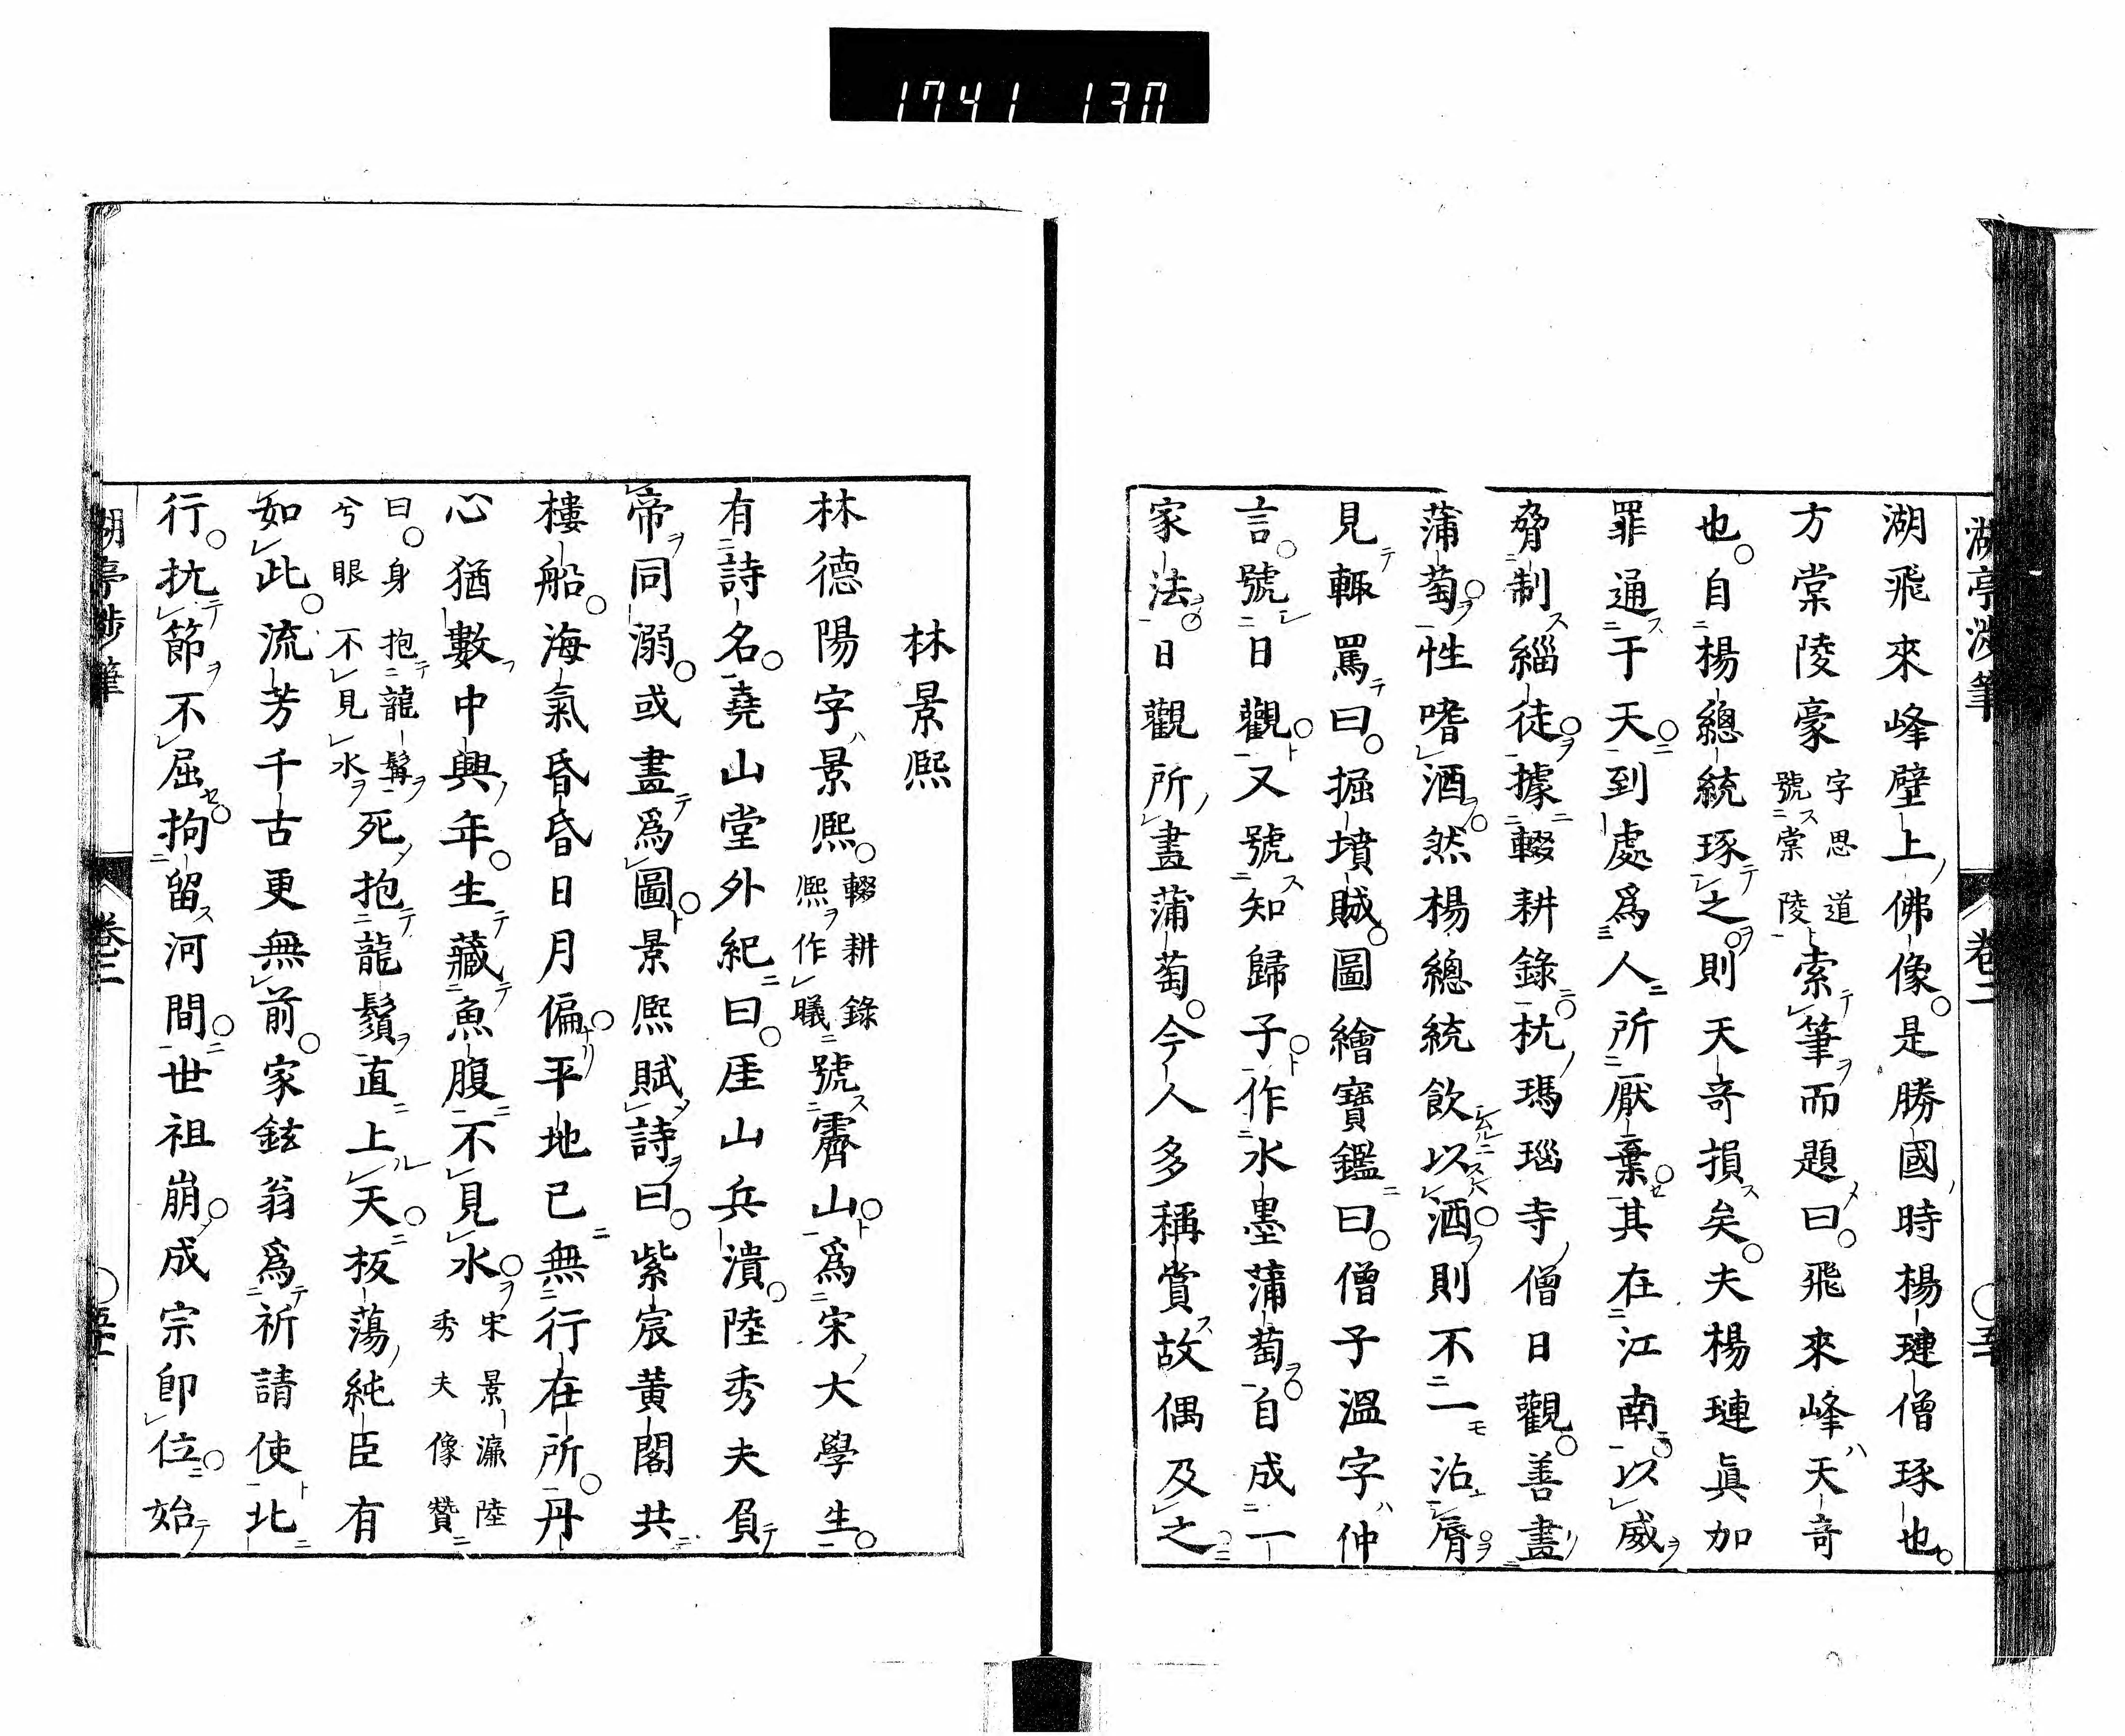 1741 130
湖亭渉筆 卷二
湖飛來峰壁上佛像是勝國時楊璉僧琢也
方棠陵豪字思道號棠陵索筆而題曰飛來峰天奇
也自楊總統琢之則天奇損矣夫楊璉眞加
罪通于天到處爲人所厭棄其在江南以威
脅制緇徒據輟耕錄杭瑪瑙寺僧日觀善畫
蒲萄性嗜酒然楊總統飲以酒則不一沾脣
見輒罵曰掘墳賊圖繪寶鑑曰僧子溫字仲
言號日觀又號知歸子作水墨蒲萄自成一
家法日觀所畫蒲萄今人多稱賞故偶及之
林景熙
林德陽字景熙輟耕錄熙作曦號霽山爲宋大學生
有詩名堯山堂外紀曰厓山兵潰陸秀夫負
帝同溺或畫爲圖景熙賦詩曰紫宸黃閣共
樓船海氣昏昏日月偏平地已無行在所丹
心猶數中興年生藏魚腹不見水宋景濂陸秀夫像贊
曰身抱龍髯兮眼不見水死抱龍鬚直上天板蕩純臣有
如此流芳千古更無前家鉉翁爲祈請使北
行抗節不屈拘留河間世祖崩成宗卽位始
湖亭渉筆 卷二